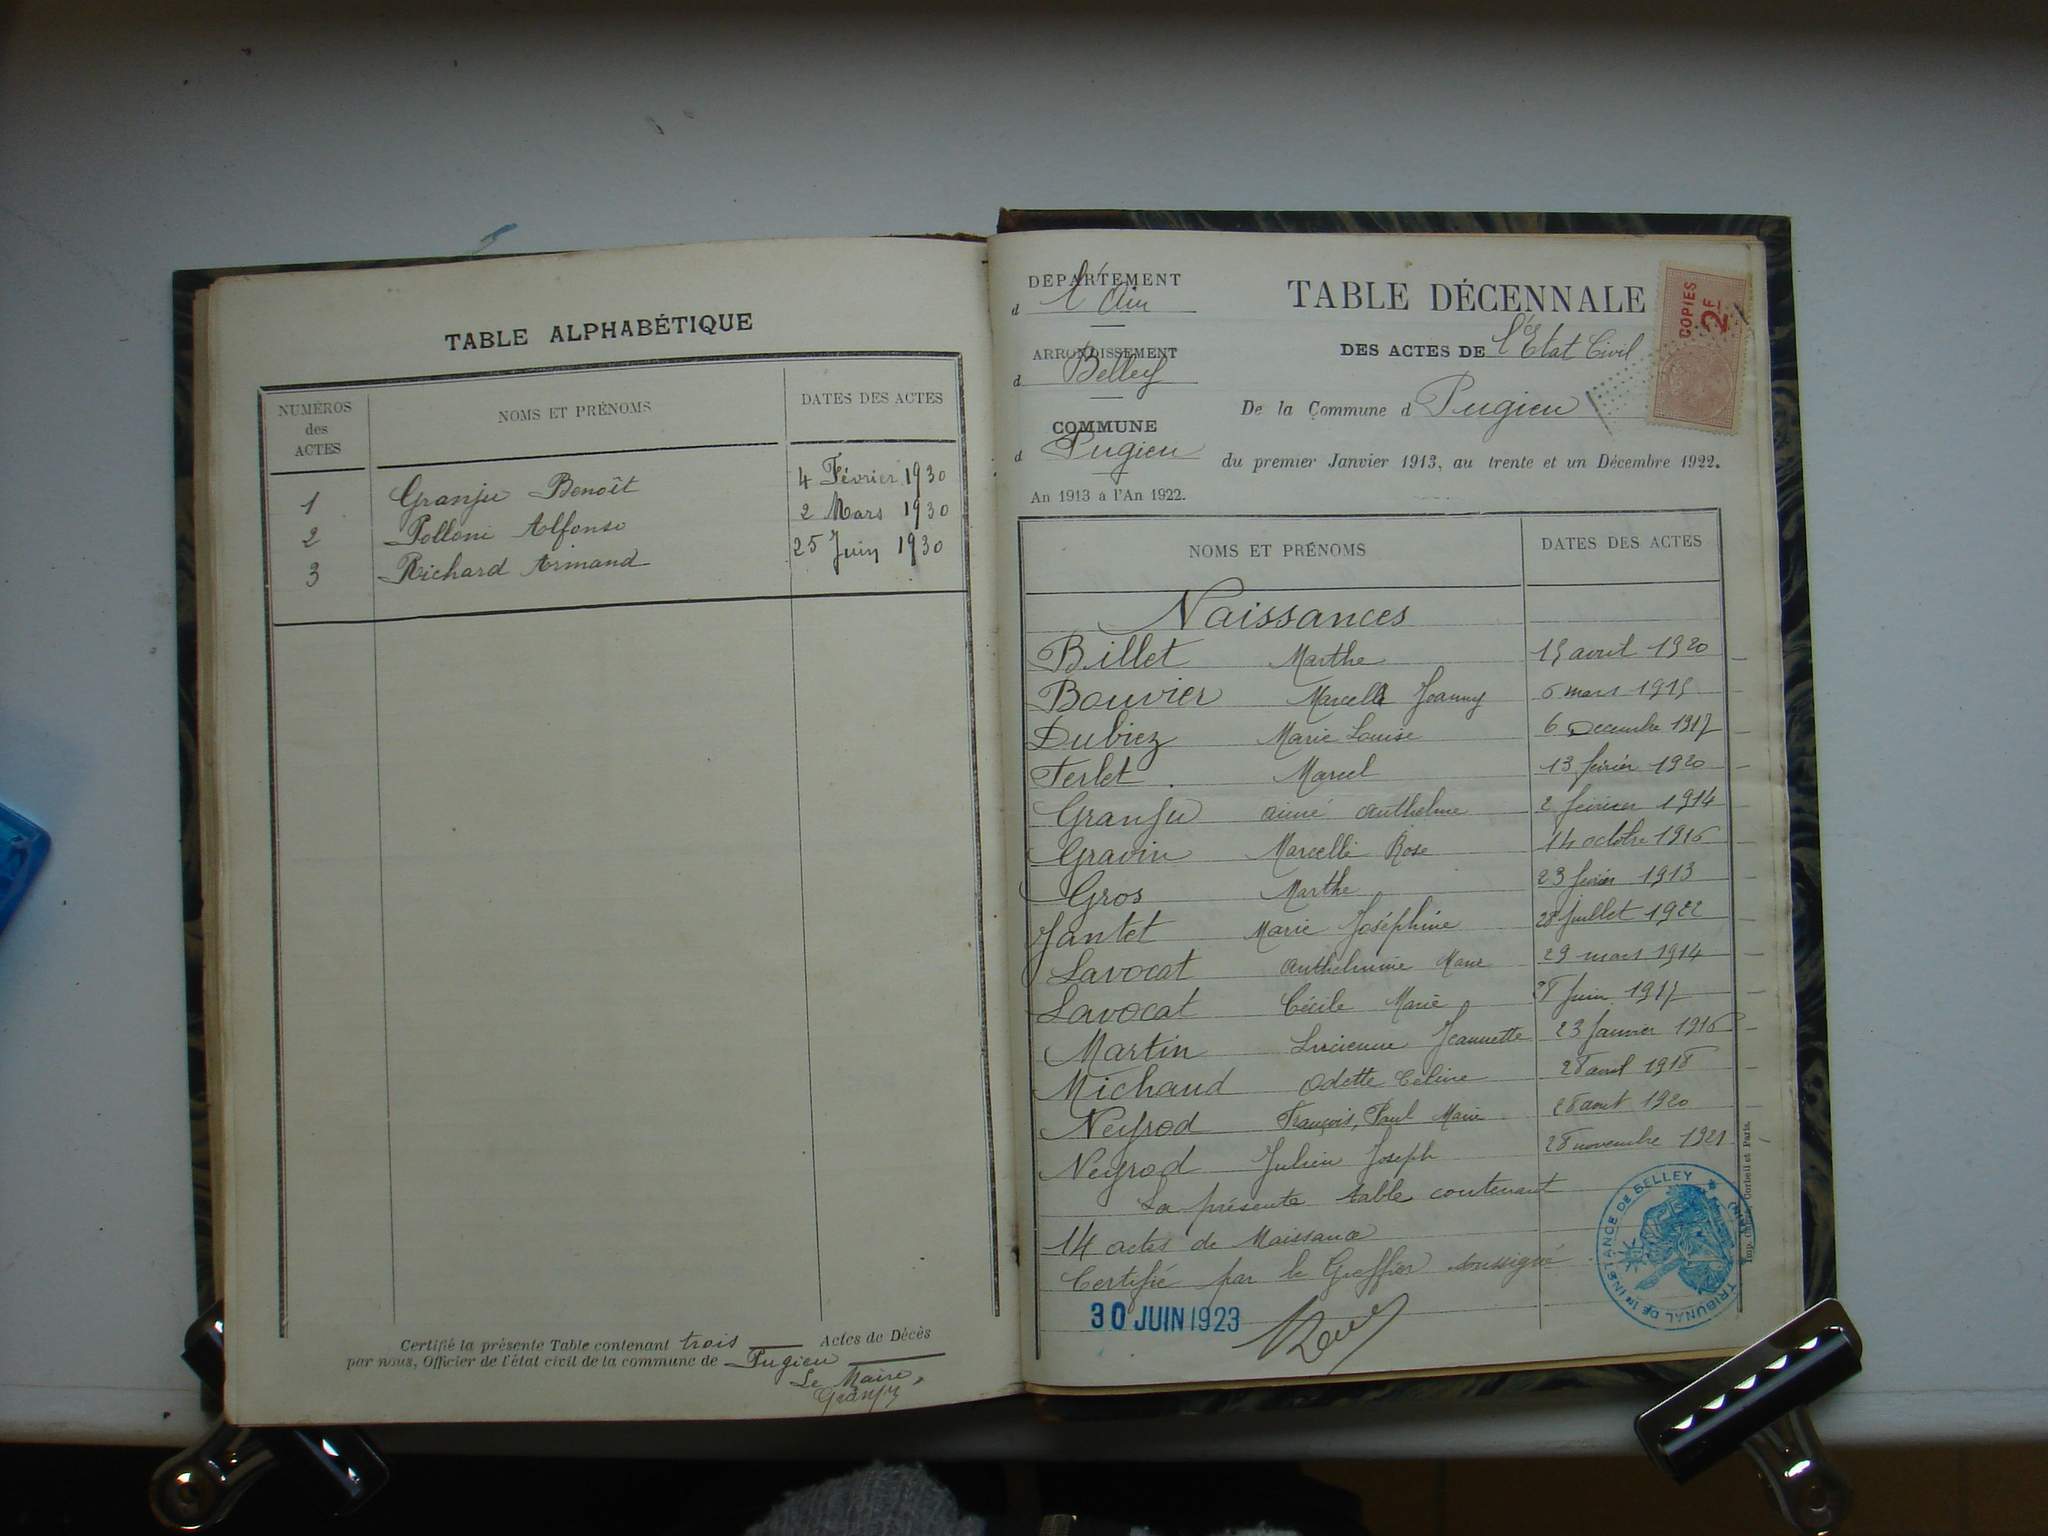 TABLE ALPHABÉTIQUE
NUMÉROS des ACTES NOMS ET PRÉNOMS DATES DES ACTES
1 Granju Benoît 4 Février 1930
2 Polloni Alfonso 2 Mars 1930
3 Richard Armand 25 Juin 1930
Certifié la présente Table contenant trois Actes de Décès
par nous, Officier de l'état civil de la commune de Pugieu
Le Maire,
Granju
DÉPARTEMENT
d l'Ain
ARRONDISSEMENT
d Belley
COMMUNE
d Pugieu
An 1913 à l'An 1922.
TABLE DÉCENNALE
DES ACTES DE l'Etat Civil
De la Commune d Pugieu
du premier Janvier 1913, au trente et un Décembre 1922.
COPIES
2F
NOMS ET PRÉNOMS DATES DES ACTES
Naissances
Billet Marthe 15 avril 1920
Bouvier Marcel Joanny 6 mars 1915
Dubiez Marie Louise 6 Decembre 1917
Ferlet Marcel 13 février 1920
Granju aimé anthelme 2 février 1914
Gravin Marcelle Rose 14 octobre 1916
Gros Marthe 23 février 1913
Jantet Marie Joséphine 28 Juillet 1922
Lavocat anthelmine Marie 29 mars 1914
Lavocat Cécile Marie 8 Juin 1917
Martin Lucienne Jeannette 23 Janvier 1916
Michaud Odette Celine 28 avril 1918
Neyrod François, Paul Marie 28 aout 1920
Neyrod Julien Joseph 28 novembre 1921
La présente table contenant
14 actes de Naissance
Certifié par le Greffier soussigné
30 JUIN 1923
TRIBUNAL DE 1re INSTANCE DE BELLEY
Corbeil et Paris.